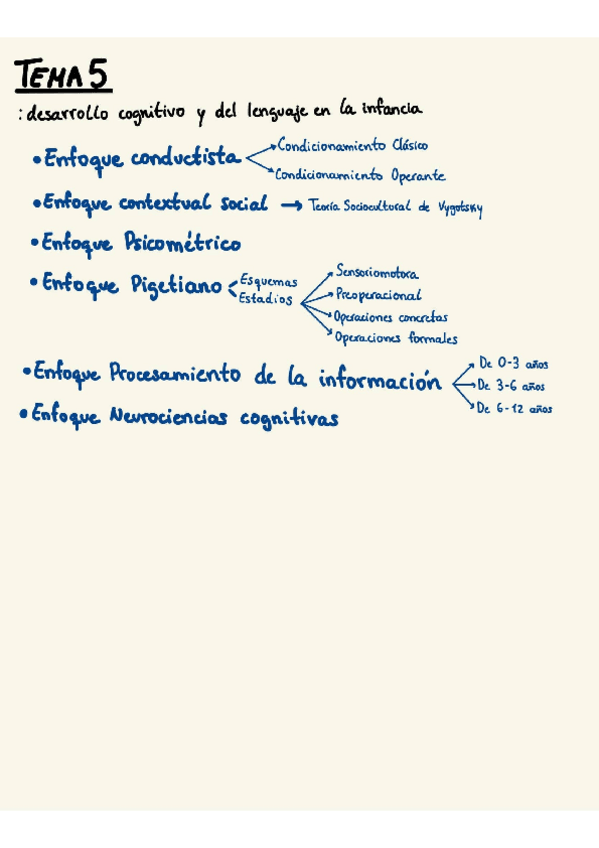 TEMA 5
: desarrollo cognitivo y del lenguaje en la infancia
• Enfoque conductista
Condicionamiento Clásico
Condicionamiento Operante
• Enfoque contextual social → Teoría Sociocultural de Vygotsky
• Enfoque Psicométrico
• Enfoque Pigetiano
Esquemas
Estadios
Sensoriomotora
Preoperacional
Operaciones concretas
Operaciones formales
• Enfoque Procesamiento de la información
De 0-3 años
De 3-6 años
De 6-12 años
• Enfoque Neurociencias cognitivas